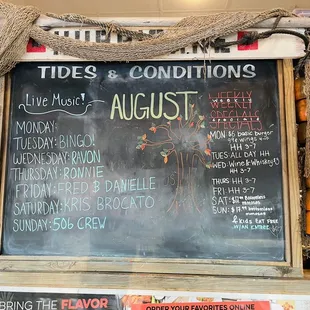 TIDES & CONDITIONS
Live Music!
AUGUST
MONDAY:
TUESDAY: BINGO!
WEDNESDAY: RAVON
THURSDAY: RONNIE
FRIDAY: FRED B DANIELLE
SATURDAY: KRIS BROCATO
SUNDAY: 506 CREW
WEEKLY
SPECIALS
MON: $6 basic burger
HH 3-7
TUES: ALL DAY HH
WED: Wine & Whiskey
HH
THURS: HH 3-7
FRI: HH 3-7
SAT:
SUN:
Kids EAT FREE
W/AN ENTREE
BRING THE FLAVOR
ORDER YOUR FAVORITES ONLINE